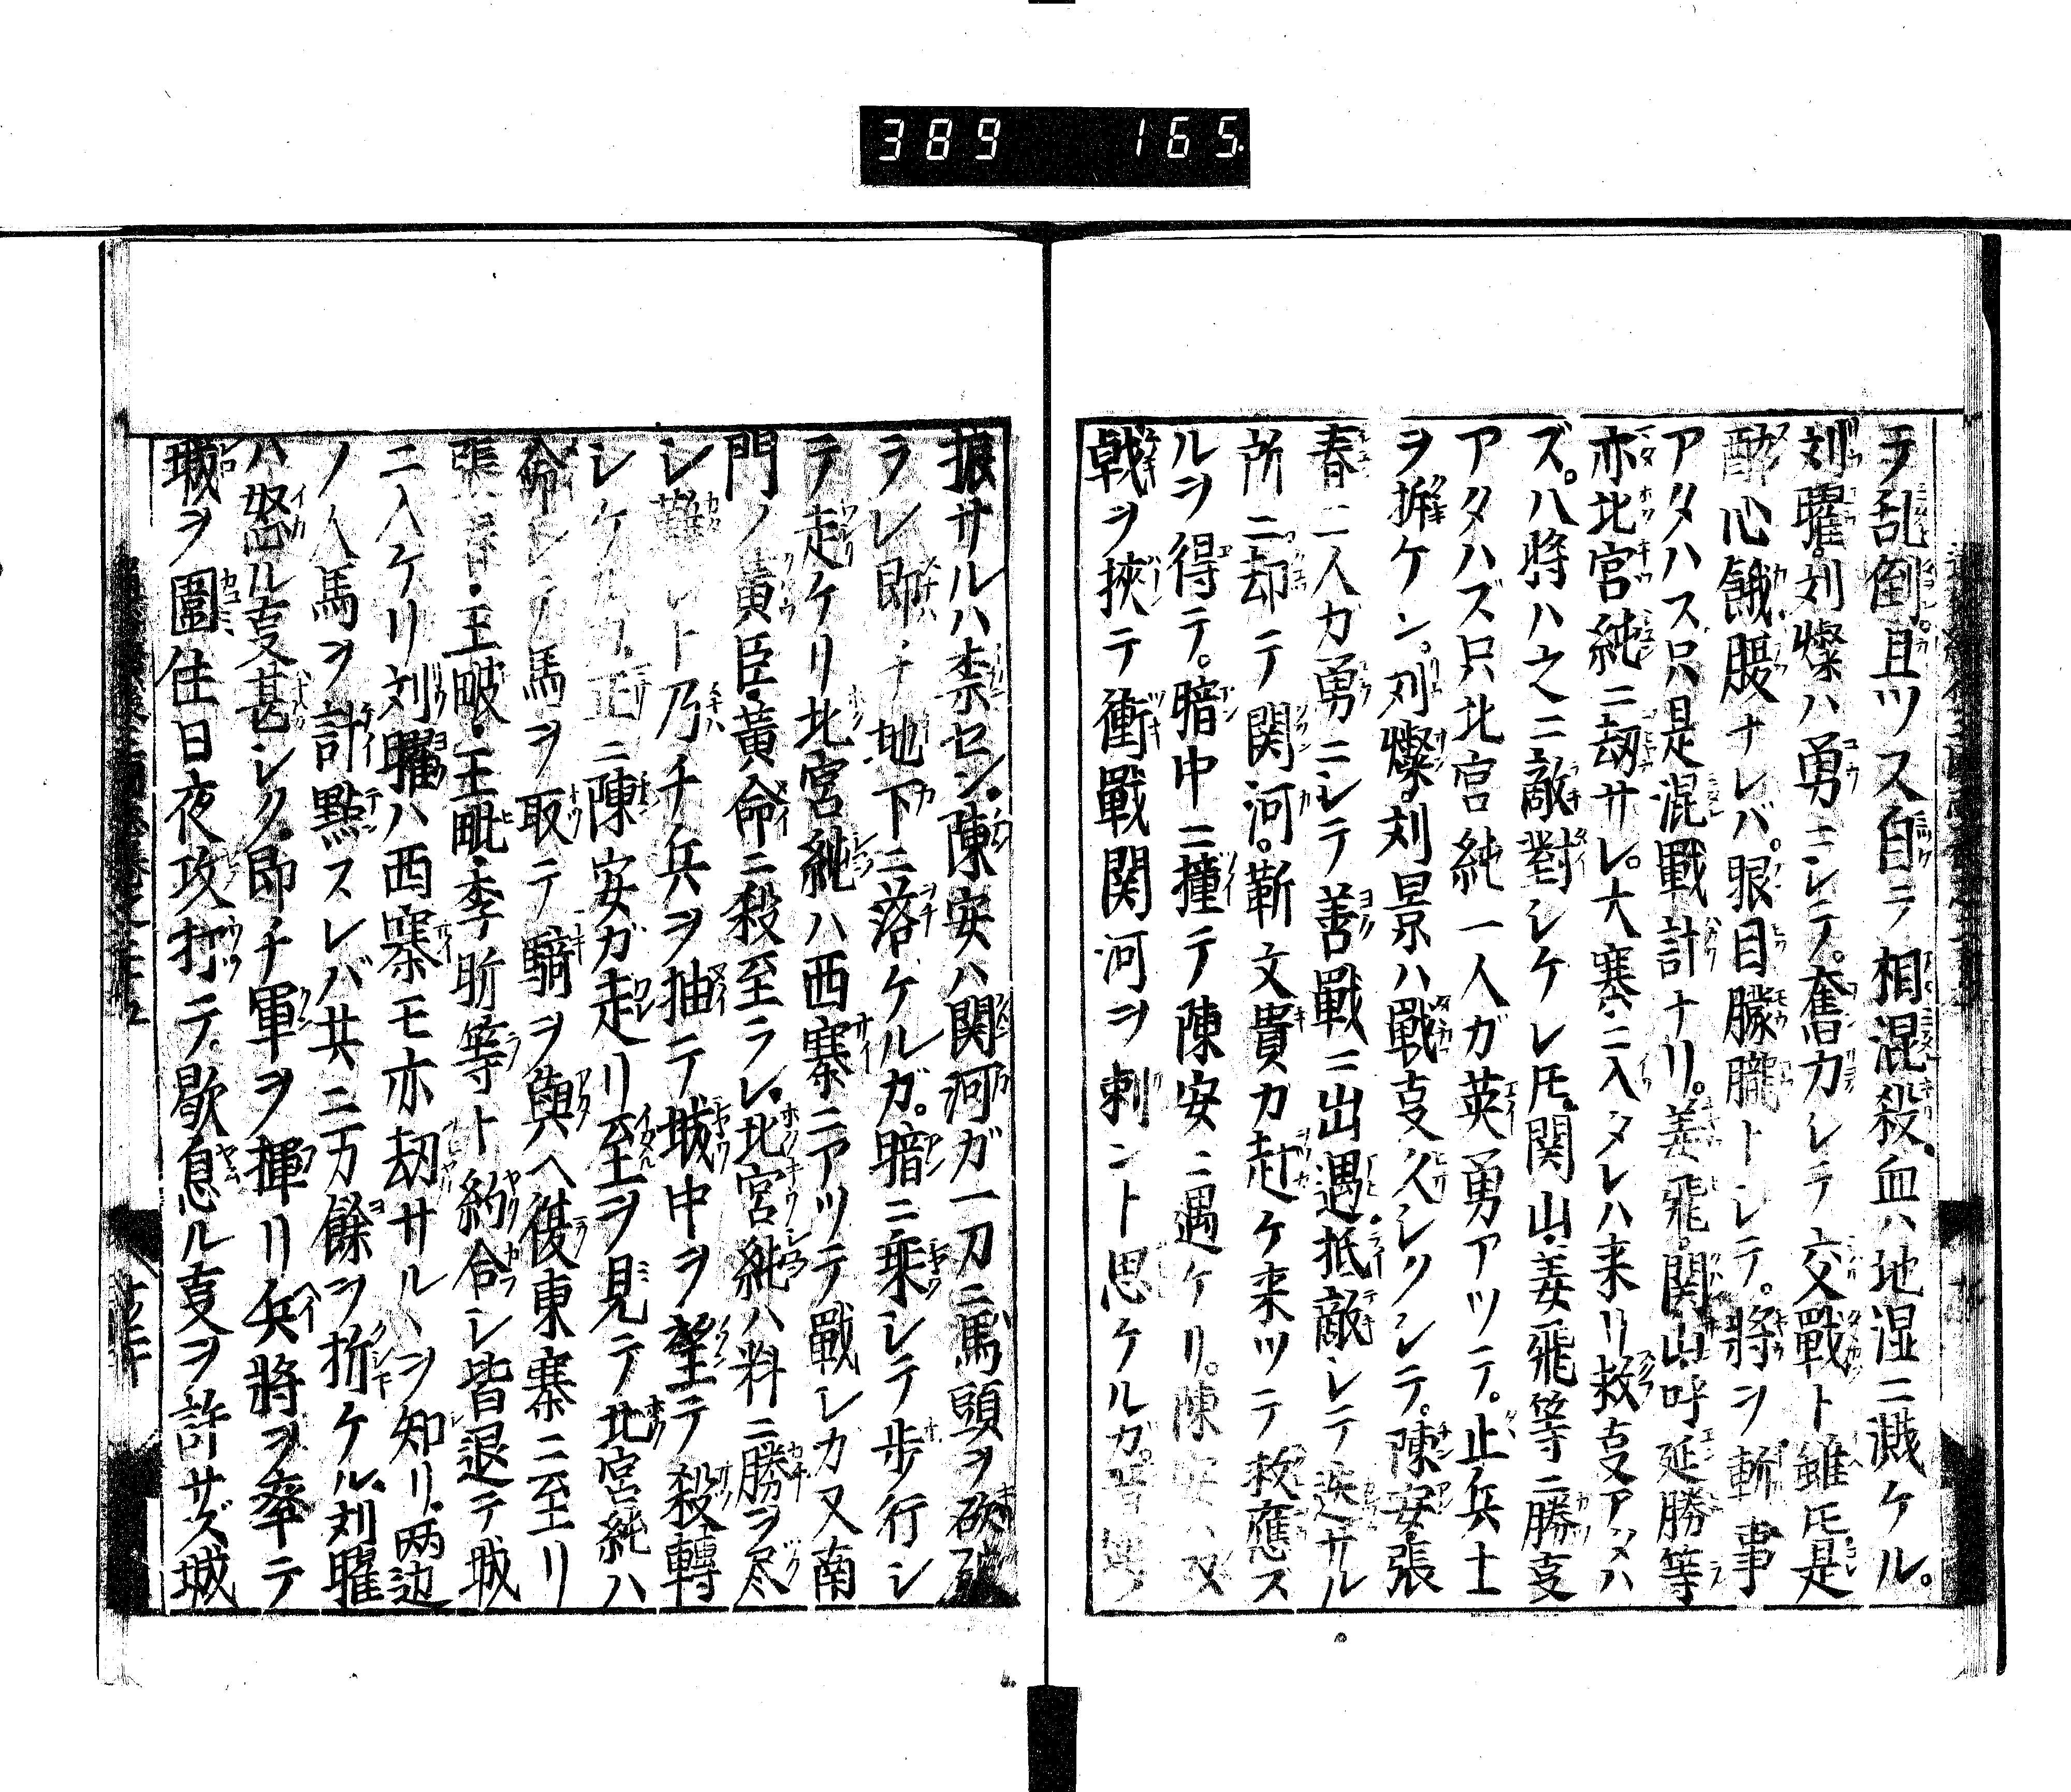 389 165
テ乱倒。且ツス自ラ相混殺血ハ地湿ニ濺ケル。
刘曜。刘燦ハ勇ニシテ。奮力シテ交戰ト雖𪜈。是
酔心餓腹ナレバ。眼目朦朧トシテ。將ヲ斬事
アタハス只是混戰計ナリ。姜飛。関山呼延勝等
亦北宮純ニ刼サレ。大寨ニ入タレハ来リ救叓アタハ
ズ。八將ハ之ニ敵對シケレ𪜈。関山姜飛等ニ勝叓
アタハズ只北宮純一人ガ英勇アツテ。止兵士
ヲ摧ケン。刘燦。刘景ハ戰叓久シソシテ。陳安。張
春二人ガ勇ニシテ善戰ニ出遇。抵敵シテ サル
所ニ却テ関河。靳文貴カ赴ケ来ツテ救應ス
ルヲ得テ。暗中ニ撞テ陳安ニ遇ケリ。陳安ハ又
戟ヲ挾テ衝戰関河ヲ刺ント思ケルガ。
狼サルハ柰セン。陳安ハ関河ガ一刀ニ馬頭ヲ砍破
ラレ即チ地下ニ落ケルガ。暗ニ乗シテ歩行シ
テ走ケリ北宮純ハ西寨ニアツテ戰シカ又南
門ノ黄臣。黄命ニ殺至ラレ。北宮純ハ料ニ勝ヲ尽
シ難シト乃チ兵ヲ抽テ城中ヲ望テ殺轉
シケルカ。正ニ陳安ガ走リ至ヲ見テ北宮純ハ
命シテ馬ヲ取テ騎ヲ與ヘ復東寨ニ至リ
張春・王畯・王毗・李昕等ト約合シ皆退テ城
ニ入ケリ刘曜ハ西寨モ亦刼サルヽヲ知リ。两边
ノ人馬ヲ計點スレバ共ニ万餘ヲ折ケル。刘曜
ハ怒ル叓甚シク。即チ軍ヲ揮リ兵將ヲ率テ
城ヲ圍住日夜攻打テ。歇息ル叓ヲ許サズ城